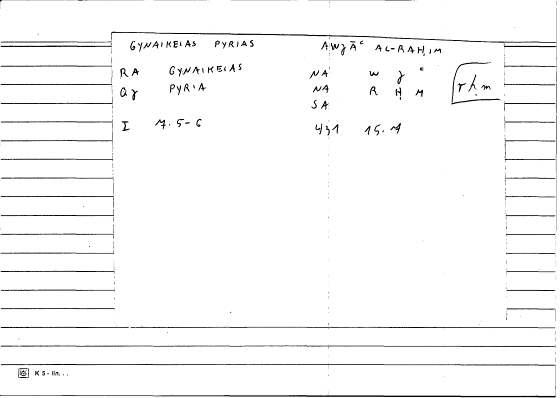 GYNAIKEIAS PYRIAS AWǧĀʿ AL-RAḤIM
RA GYNAIKEIAS NA W ǧ ʿ
Qγ PYRIA NA R Ḥ M rḥm
SA
I 7.5-6 15.7
K 5-lin...